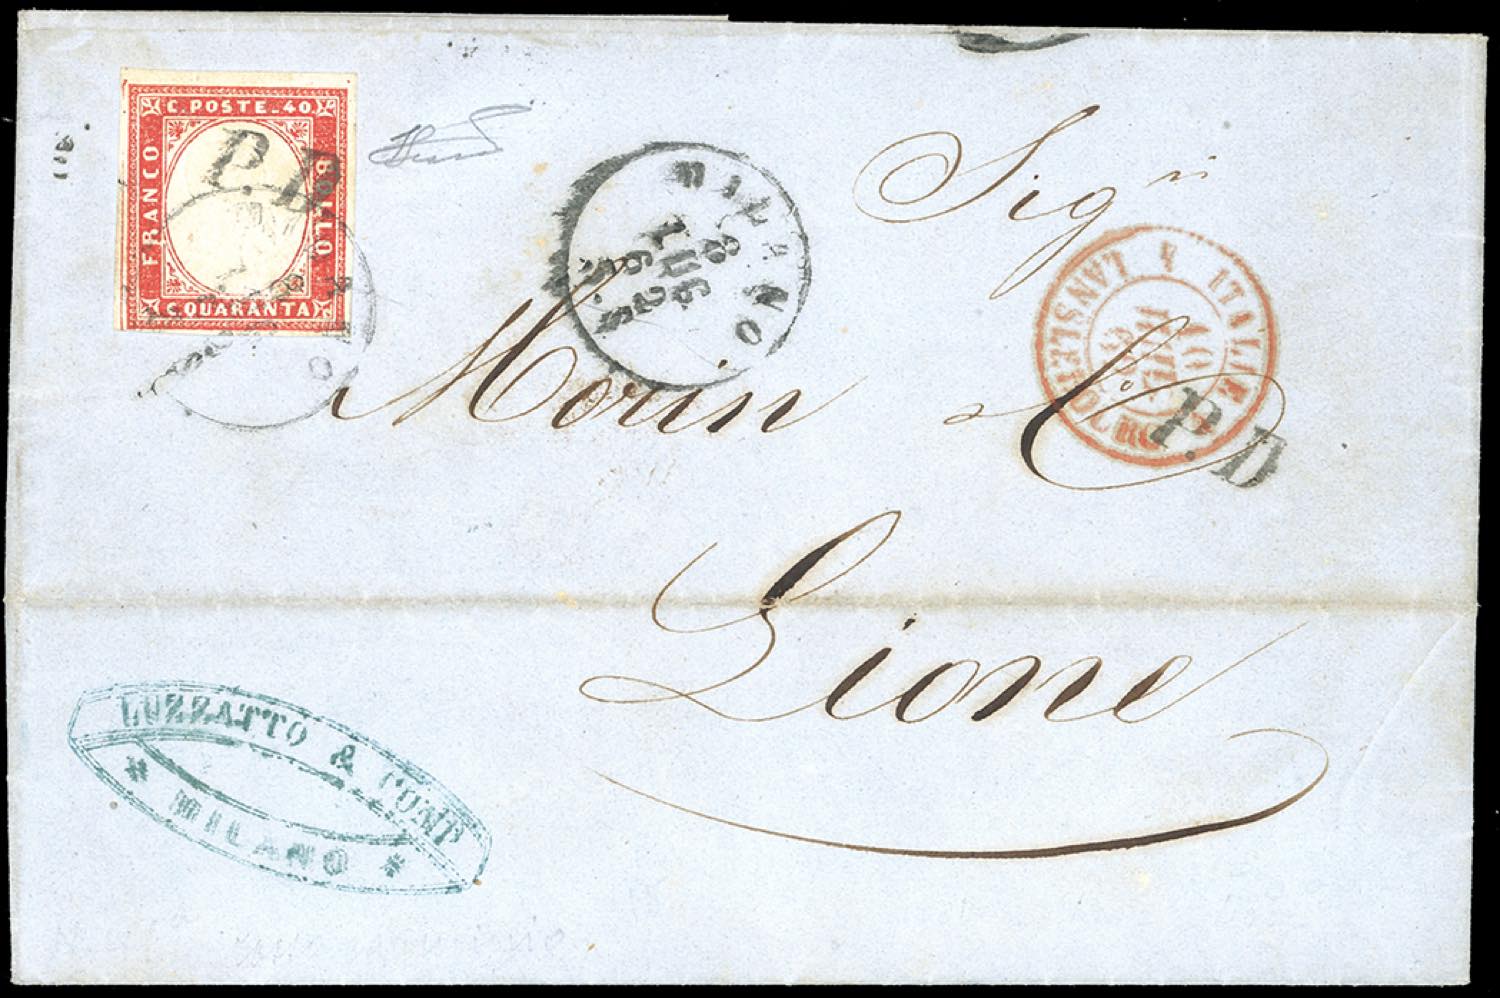 C. POSTE. 40.
FRANCO
BOLLO
C. QUARANTA
P.D.
MILANO
8
LUG
62
Sigri
Morin C.
Lione
ITALIE
10
LANSLEBOURG
P.D
LUZZATTO & COMP
* MILANO *